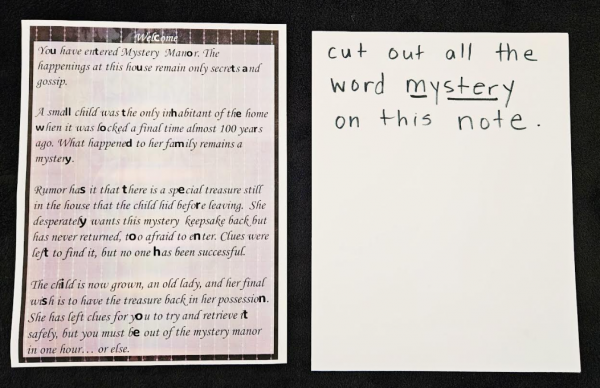 Welcome
You have entered Mystery Manor. The
happenings at this house remain only secrets and
gossip.
A small child was the only inhabitant of the home
when it was locked a final time almost 100 years
ago. What happened to her family remains a
mystery.
Rumor has it that there is a special treasure still
in the house that the child hid before leaving. She
desperately wants this mystery keepsake back but
has never returned, too afraid to enter. Clues were
left to find it, but no one has been successful.
The child is now grown, an old lady, and her final
wish is to have the treasure back in her possession.
She has left clues for you to try and retrieve it
safely, but you must be out of the mystery manor
in one hour... or else.
cut out all the
word mystery
on this note.